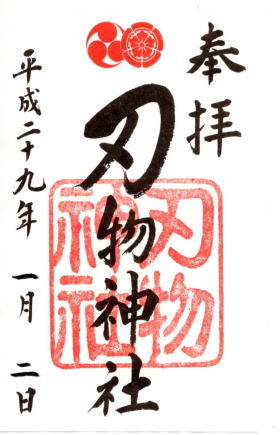 奉拝
刃物神社
刃物
神社
平成二十九年 一月 二日